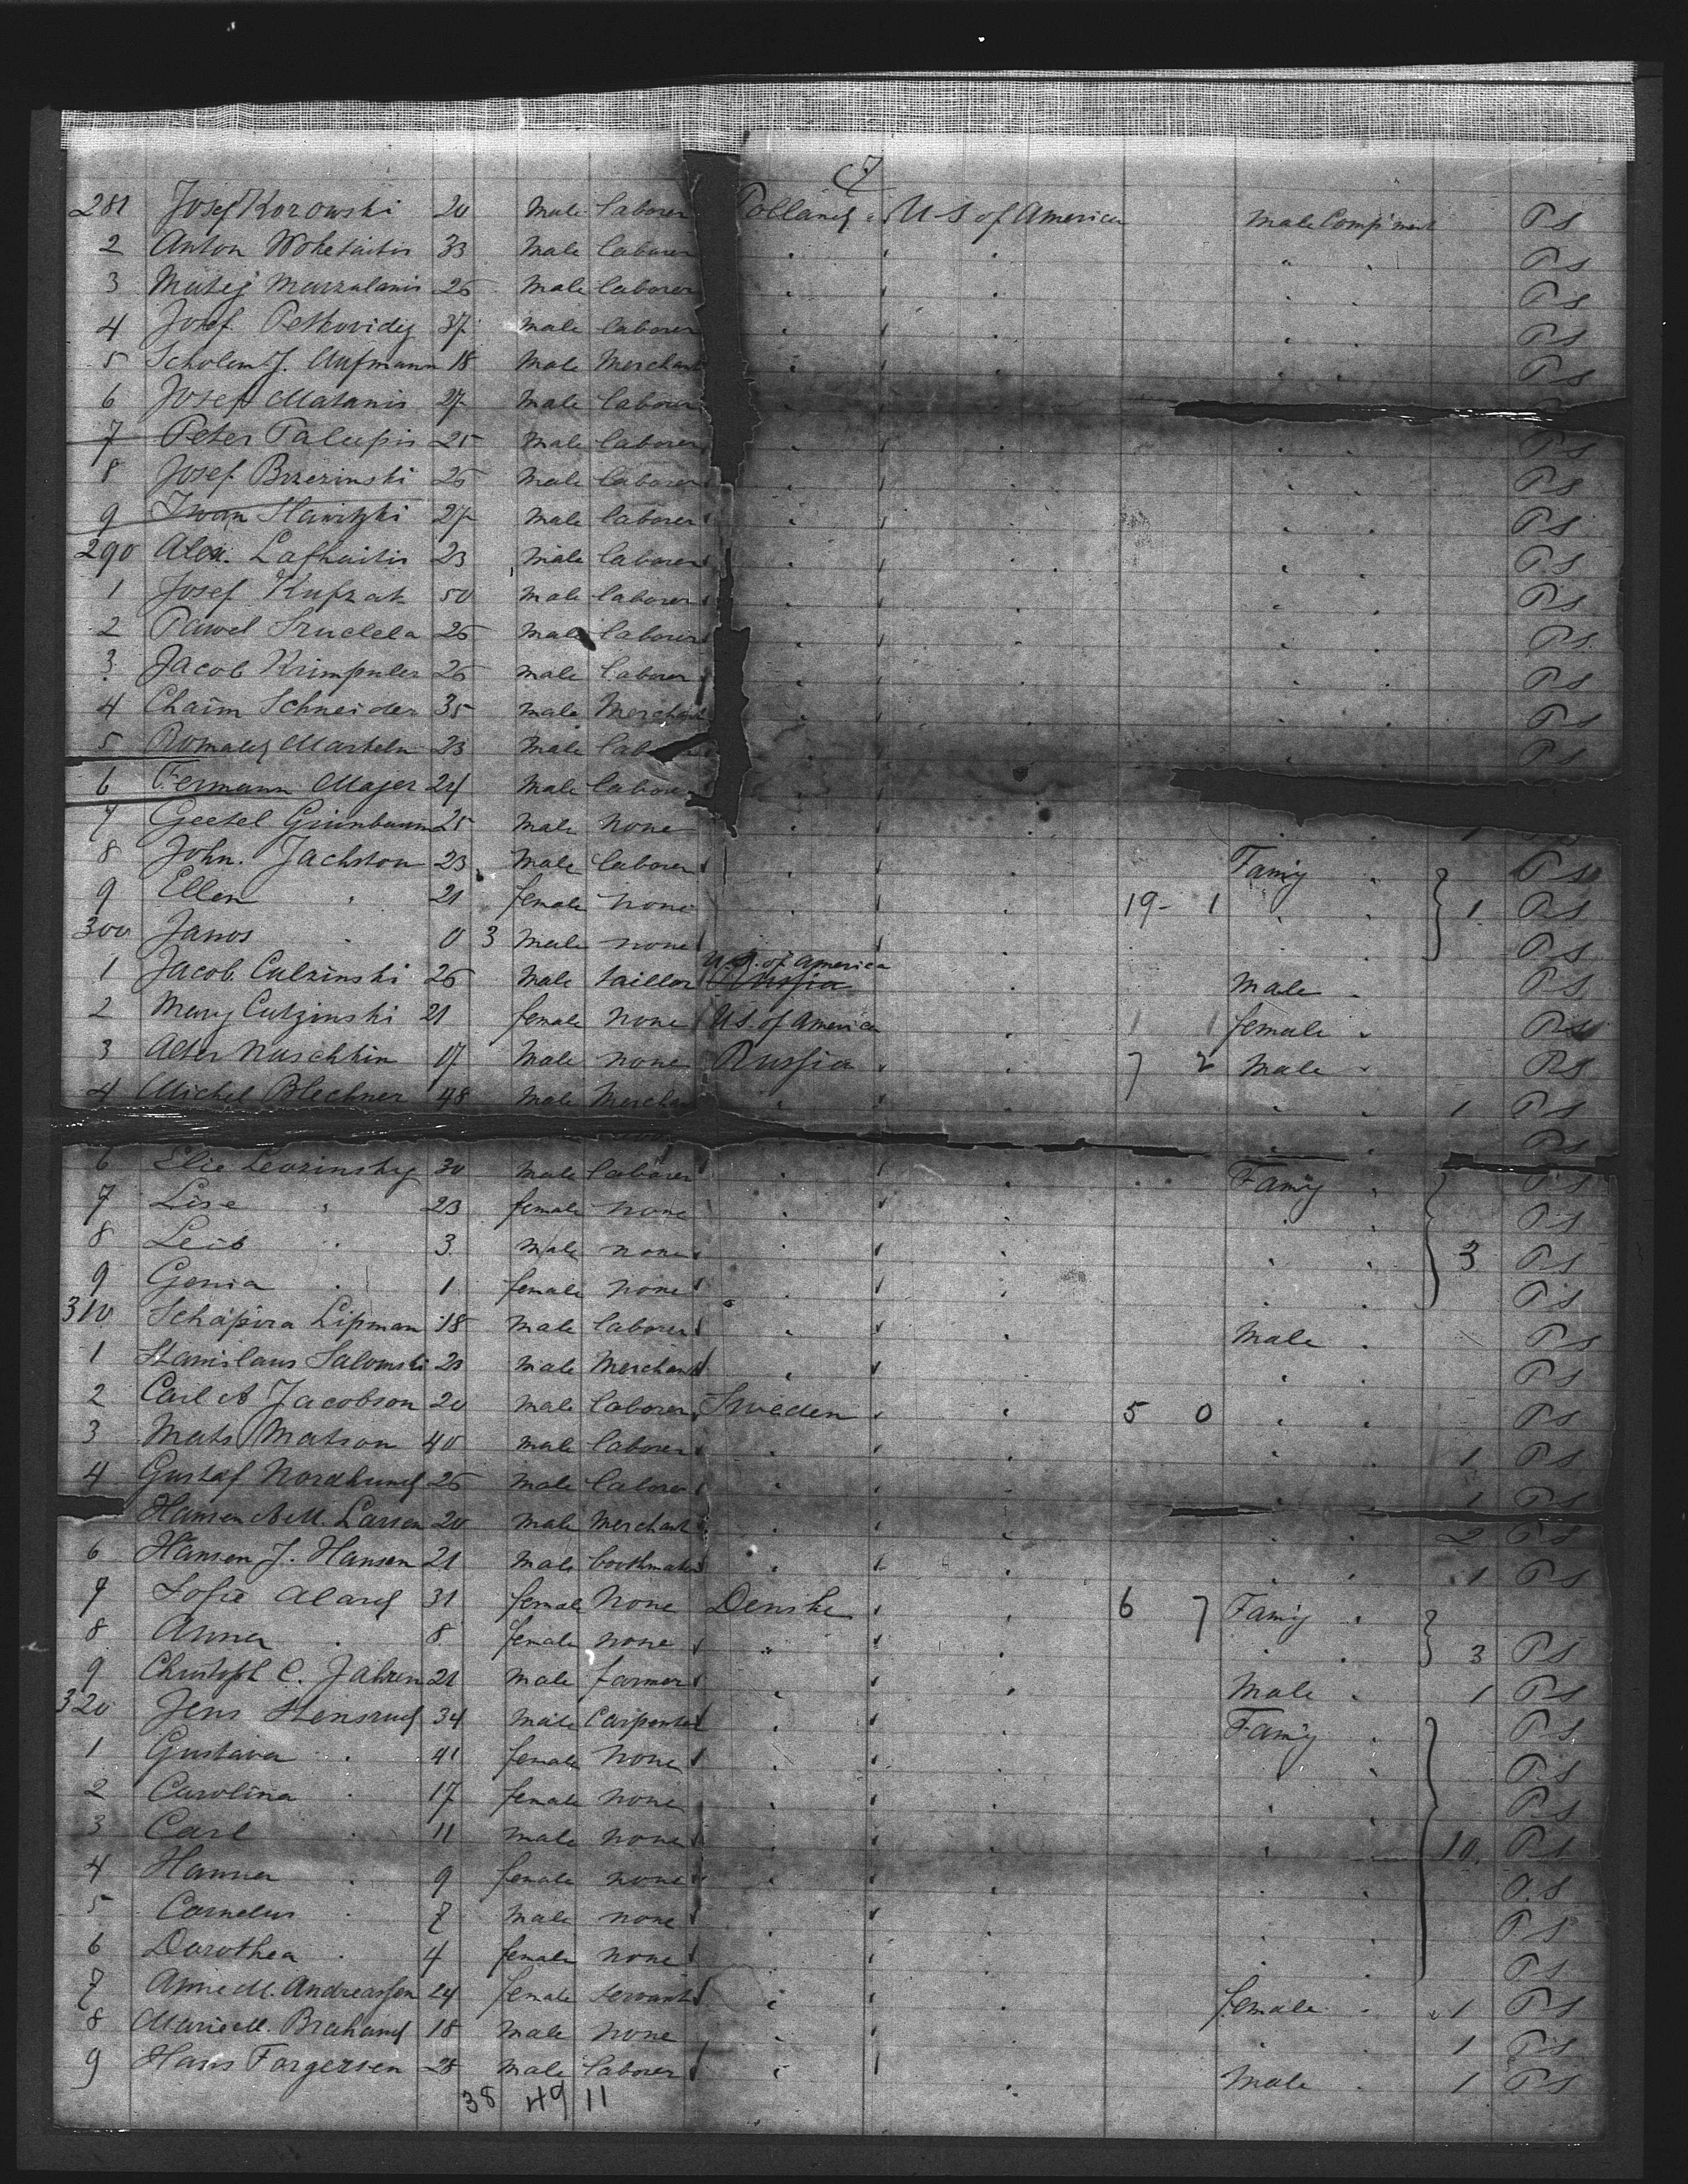 7
281 Josef Korowski 20 Male laborer Polland U S of America Male Comp'ment P S
2 Anton Woketaitis 33 Male laborer " " " " " P S
3 Matej Marzulanis 26 Male laborer " " " " " P S
4 Josef Petkovidij 37 Male laborer " " " " " P S
5 Scholem J. Aufmann 18 Male Merchant " " " P S
6 Josef Matanis 27 Male labourer "
7 Peter Palupis 25 Male laborer " " " " " P S
8 Josef Brzezinski 26 Male laborer " " " " " P S
9 Iwan Slawitzki 27 Male laborer " " " " " P S
290 Alex. Lafkaitis 23 Male laborer " " " " " P S
1 Josef Kufzat 50 Male laborer " " " " " P S
2 Pawel 26 Male laborer " " " " " P S
3 Jacob Krimpuler 26 male laborer " " " " " P S
4 Chaim Schneider 35 male Merchant " " " " " P S
5 Romald Marteln 23 Male " " " P S
6 Fermann Majer 24 Male laborer " "
7 Geetel Grünbaum 25 Male None " " " " " 1
8 John. Jachston 23 Male laborer " " " Famiy " P S
9 Ellen " 21 female none " " " 19- 1 " " 1 P S
300 Janos " 0 3 male none " " " " P S
1 Jacob Culzinski 26 Male taillor U.S. of America Russia " Male " P S
2 Mary Cutzinski 21 female none U.S. of America " 1 1 female " P S
3 Alter Naschkin 17 Male none Russia " " 7 2 Male " P S
4 Michel Blechner 48 Male Merchant " " " " " 1 P S
" " P S
6 Elie Levzinsky 30 Male laborer " " " Famiy " P S
7 Lise " 23 female none " " " " " P S
8 Leib " 3 Male none " " " " " 3 P S
9 Genia " 1 female none " " " " " P S
310 Schapira Lipman 18 Male laborer " " " Male " P S
1 Stanislaus Salomski 23 Male Merchant " " " " P S
2 Carl A Jacobson 20 Male laborer Sweden " " 5 0 " " P S
3 Mats Matson 40 male laborer " " " " " 1 P S
4 Gustaf Nordlund 26 Male laborer " " " " 1 P S
Hansen A M. Larsen 20 Male Merchant " " " " " 2 P S
6 Hansen J. Hansen 21 Male boothmaker " " " " " 1 P S
7 Sofie Alard 31 female None Denske " " 6 7 Famiy "
8 Anna " 8 female none " " " " " 3 P S
9 Christoph C. Jahren 21 Male farmer " " " Male " 1 P S
320 Jens Stensrud 34 Male Carpenter " " " Famiy " P S
1 Gustava " 41 female None " " " " " P S
2 Carolina " 17 female none " " " " " P S
3 Carl " 11 male none " " " " " 10 P S
4 Hanna " 9 female none " " " " " P S
5 Carnelus " 7 Male none " " " " " P S
6 Dorothea " 4 female none " " " " " P S
7 Anne M. Andreassen 24 female Servant " " " female " 1 P S
8 Marie M. Brahand 18 Male none " " " " " 1 P S
9 Hans Torgersen 28 Male laborer " " " Male " 1 P S
38 49 11